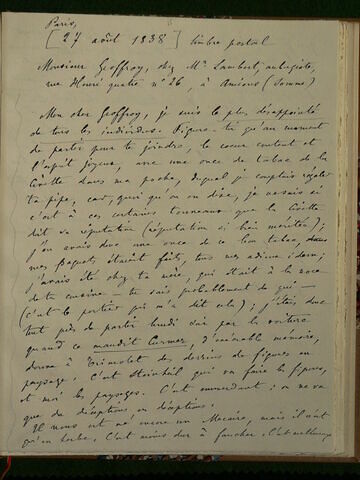 Paris,
[27 août 1838] timbre postal
Monsieur Geoffroy, chez Mr Lambert, aubergiste,
rue Henri quatre n° 26, à Amiens (Somme)
Mon cher Geoffroy, je suis le plus désappointé
de tous les individus. Figure-toi qu'au moment
de partir pour te joindre, le coeur content et
l'esprit joyeux, avec une once de tabac de la
Civette dans ma poche, duquel je comptais régaler
ta pipe, car, quoi qu'on en dise, je savais si
c'est à ces certaines tonneaux que la Civette
doit sa réputation (réputation si bien méritée);
j'en avais donc une once de ce bon tabac, dans
mes paquets étaient faits, tous mes adieux idem;
j'avais été chez ta mère, qui était à la noce
de ta cousine — tu sais probablement qui —
(c'est le portier qui m'a dit cela); j'étais donc
tout près de partir lundi soir par la voiture
quand ce maudit Curmer, d'exécrable mémoire,
donna à Trimolet des dessins de figures en
paysage. C'est Steinheil qui va faire les figures,
et moi les paysages. C'est emmerdant; on ne va
que de déceptions en déceptions.
Il nous est né encore un Macaire, mais il n'est
qu'en herbe. C'est moins dur à faucher. C'est